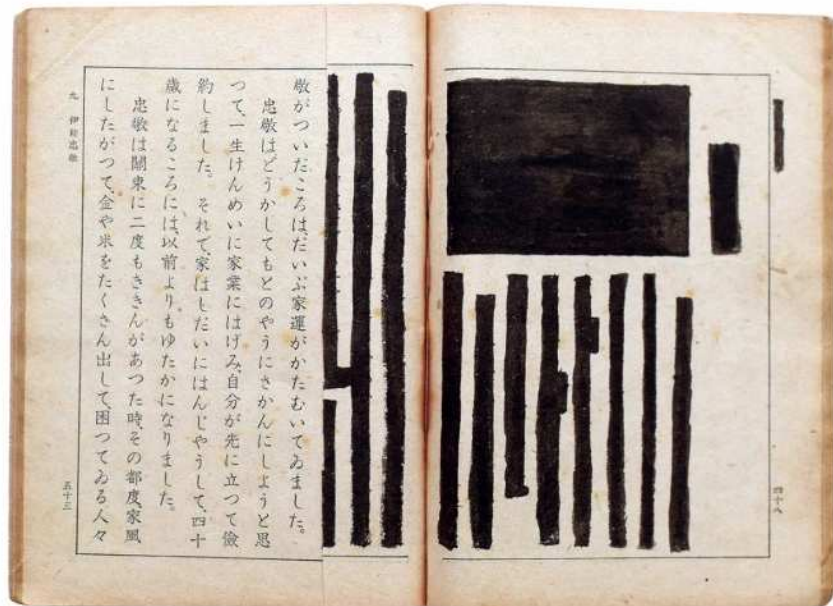 四十八
敬がついだころは、だいぶ家運がかたむいてゐました。
忠敬はどうかしてもとのやうにさかんにしようと思
つて、一生けんめいに家業にはげみ、自分が先に立つて儉
約しました。それで、家はしだいにはんじやうして、四十
歳になるころには、以前よりもゆたかになりました。
忠敬は關東に二度もききんがあつた時、その都度、家風
にしたがつて、金や米をたくさん出して、困つてゐる人々
九 伊能忠敬
五十三